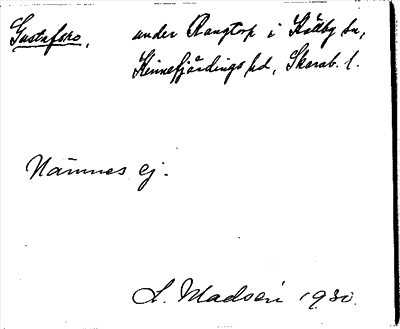 Gustafsro, under Rangtorp i Källby sn,
Kinnefjärdings hd, Skarab. l.
Nämnes ej.
L. Madsén 1930.